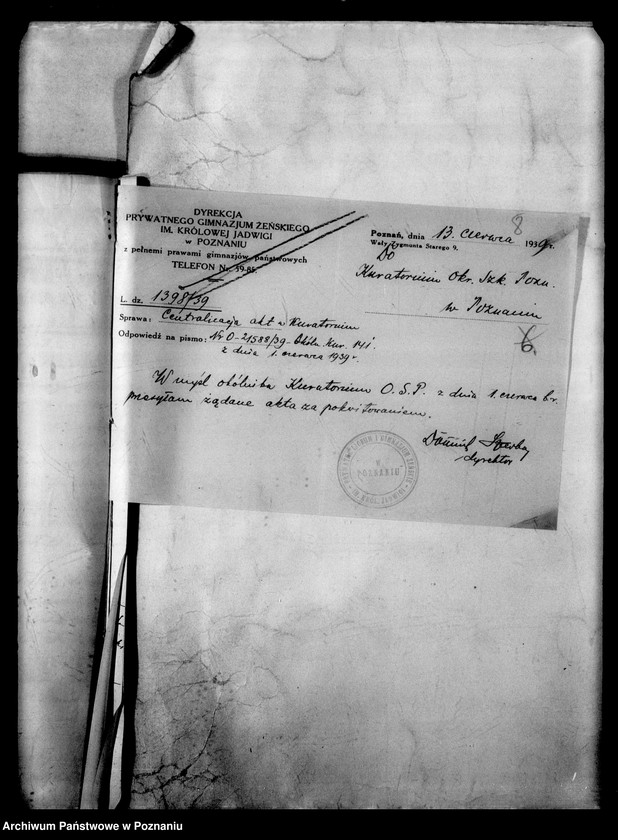 DYREKCJA
PRYWATNEGO GIMNAZJUM ŻEŃSKIEGO
IM. KRÓLOWEJ JADWIGI
w POZNANIU
z pełnemi prawami gimnazjów państwowych
TELEFON Nr. 39-85.
8
Poznań, dnia 13. czerwca 1939 r.
Wały Zygmunta Starego 9.
Do
Kuratorium Okr. Szk. Pozn.
w Poznaniu
L. dz. 1398/39
Sprawa: Centralizacja akt w Kuratorium
Odpowiedź na pismo: Nr O-21588/39 - Okóln. Kur. 141.
z dnia 1. czerwca 1939 r.
6.
W myśl okólnika Kuratorium O.S.P. z dnia 1. czerwca br.
przesyłam żądane akta za pokwitowaniem.
dyrektor
W
POZNANIU
Archiwum Państwowe w Poznaniu